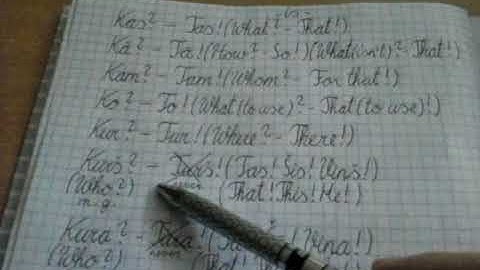 Kas? – Tas! (What? - That!)
Kā? – Tā! (How? - So!) (What(isn't)? - That!)
Kam? – Tam! (Whom? - For that!)
Ko? – To! (What(to use)? - That(to use)!)
Kur? – Tur! (Where? - There!)
Kurš? – Turš! (Tas! Šis! Viņš!)
(Who?) never (That! This! He!)
m.g.
Kura? – Tura! Viņa!)
(Who?) (That!